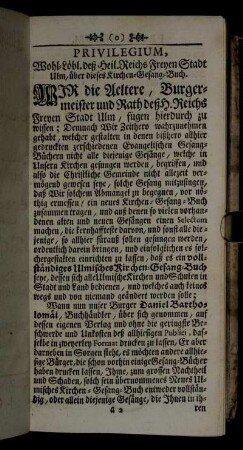 (0)
PRIVILEGIUM,
Wohl-Löbl. deß Heil. Reichs Freyen Stadt
Ulm, über dieses Kirchen-Gesang-Buch.
WIR die Aeltere, Burger-
meister und Rath deß H. Reichs
Freyen Stadt Ulm, fügen hierdurch zu
wissen; Demnach Wir Zeithero wahrzunehmen
gehabt, welcher gestalten in denen bißhero allhier
gedruckten verschiedenen Evangelischen Gesang-
Büchern nicht alle diejenige Gesänge, welche in
Unsern Kirchen gesungen werden, begriffen, und
also die Christliche Gemeinde nicht allezeit ver-
mögend gewesen seye, solche Gesang mitzusingen,
daß Wir solchem Abmangel zu begegnen, der
nothdurfft ermessen, ein neues Kirchen-Gesang-Buch
zusammen tragen, und auß denen so vielen vorhan-
denen alten und neuen Gesängen einen Selectum
machen, die kernhaffteste darvon, und sonst alle die-
jenige, so allhier forthin sollen gesungen werden,
ordentlich darein bringen, und einfolglichen es sol-
chergestalten einrichten zu lassen, daß es ein voll-
ständiges Ulmisches Kirchen-Gesang-Buch
seye, dessen sich alle Ulmische Kirchen und Schulen in
Stadt und Land bedienen, und welches auch keines
wegs und von niemand geändert werden solle;
Wann nun unser Burger Daniel Bartho-
lomäi, Buchhändler, über sich genommen, auf
dessen eigenen Verlag und ohne die geringste Be-
schwerde und Unkosten deß allhiesigen Publici, das-
selbe in zweyerley Format drucken zu lassen, Er aber
darneben in Sorgen steht, es möchten andere allhie-
sige Bürger, die schon vorhin einige Gesang-Bücher
haben drucken lassen, Ihme, zum grossen Nachtheil
und Schaden, solch sein übernommenes Neues Ul-
misches Kirchen-Gesang-Buch entweder vollstän-
dig, oder allein diejenige Gesänge, die Ihnen in ih-
a 2 ren